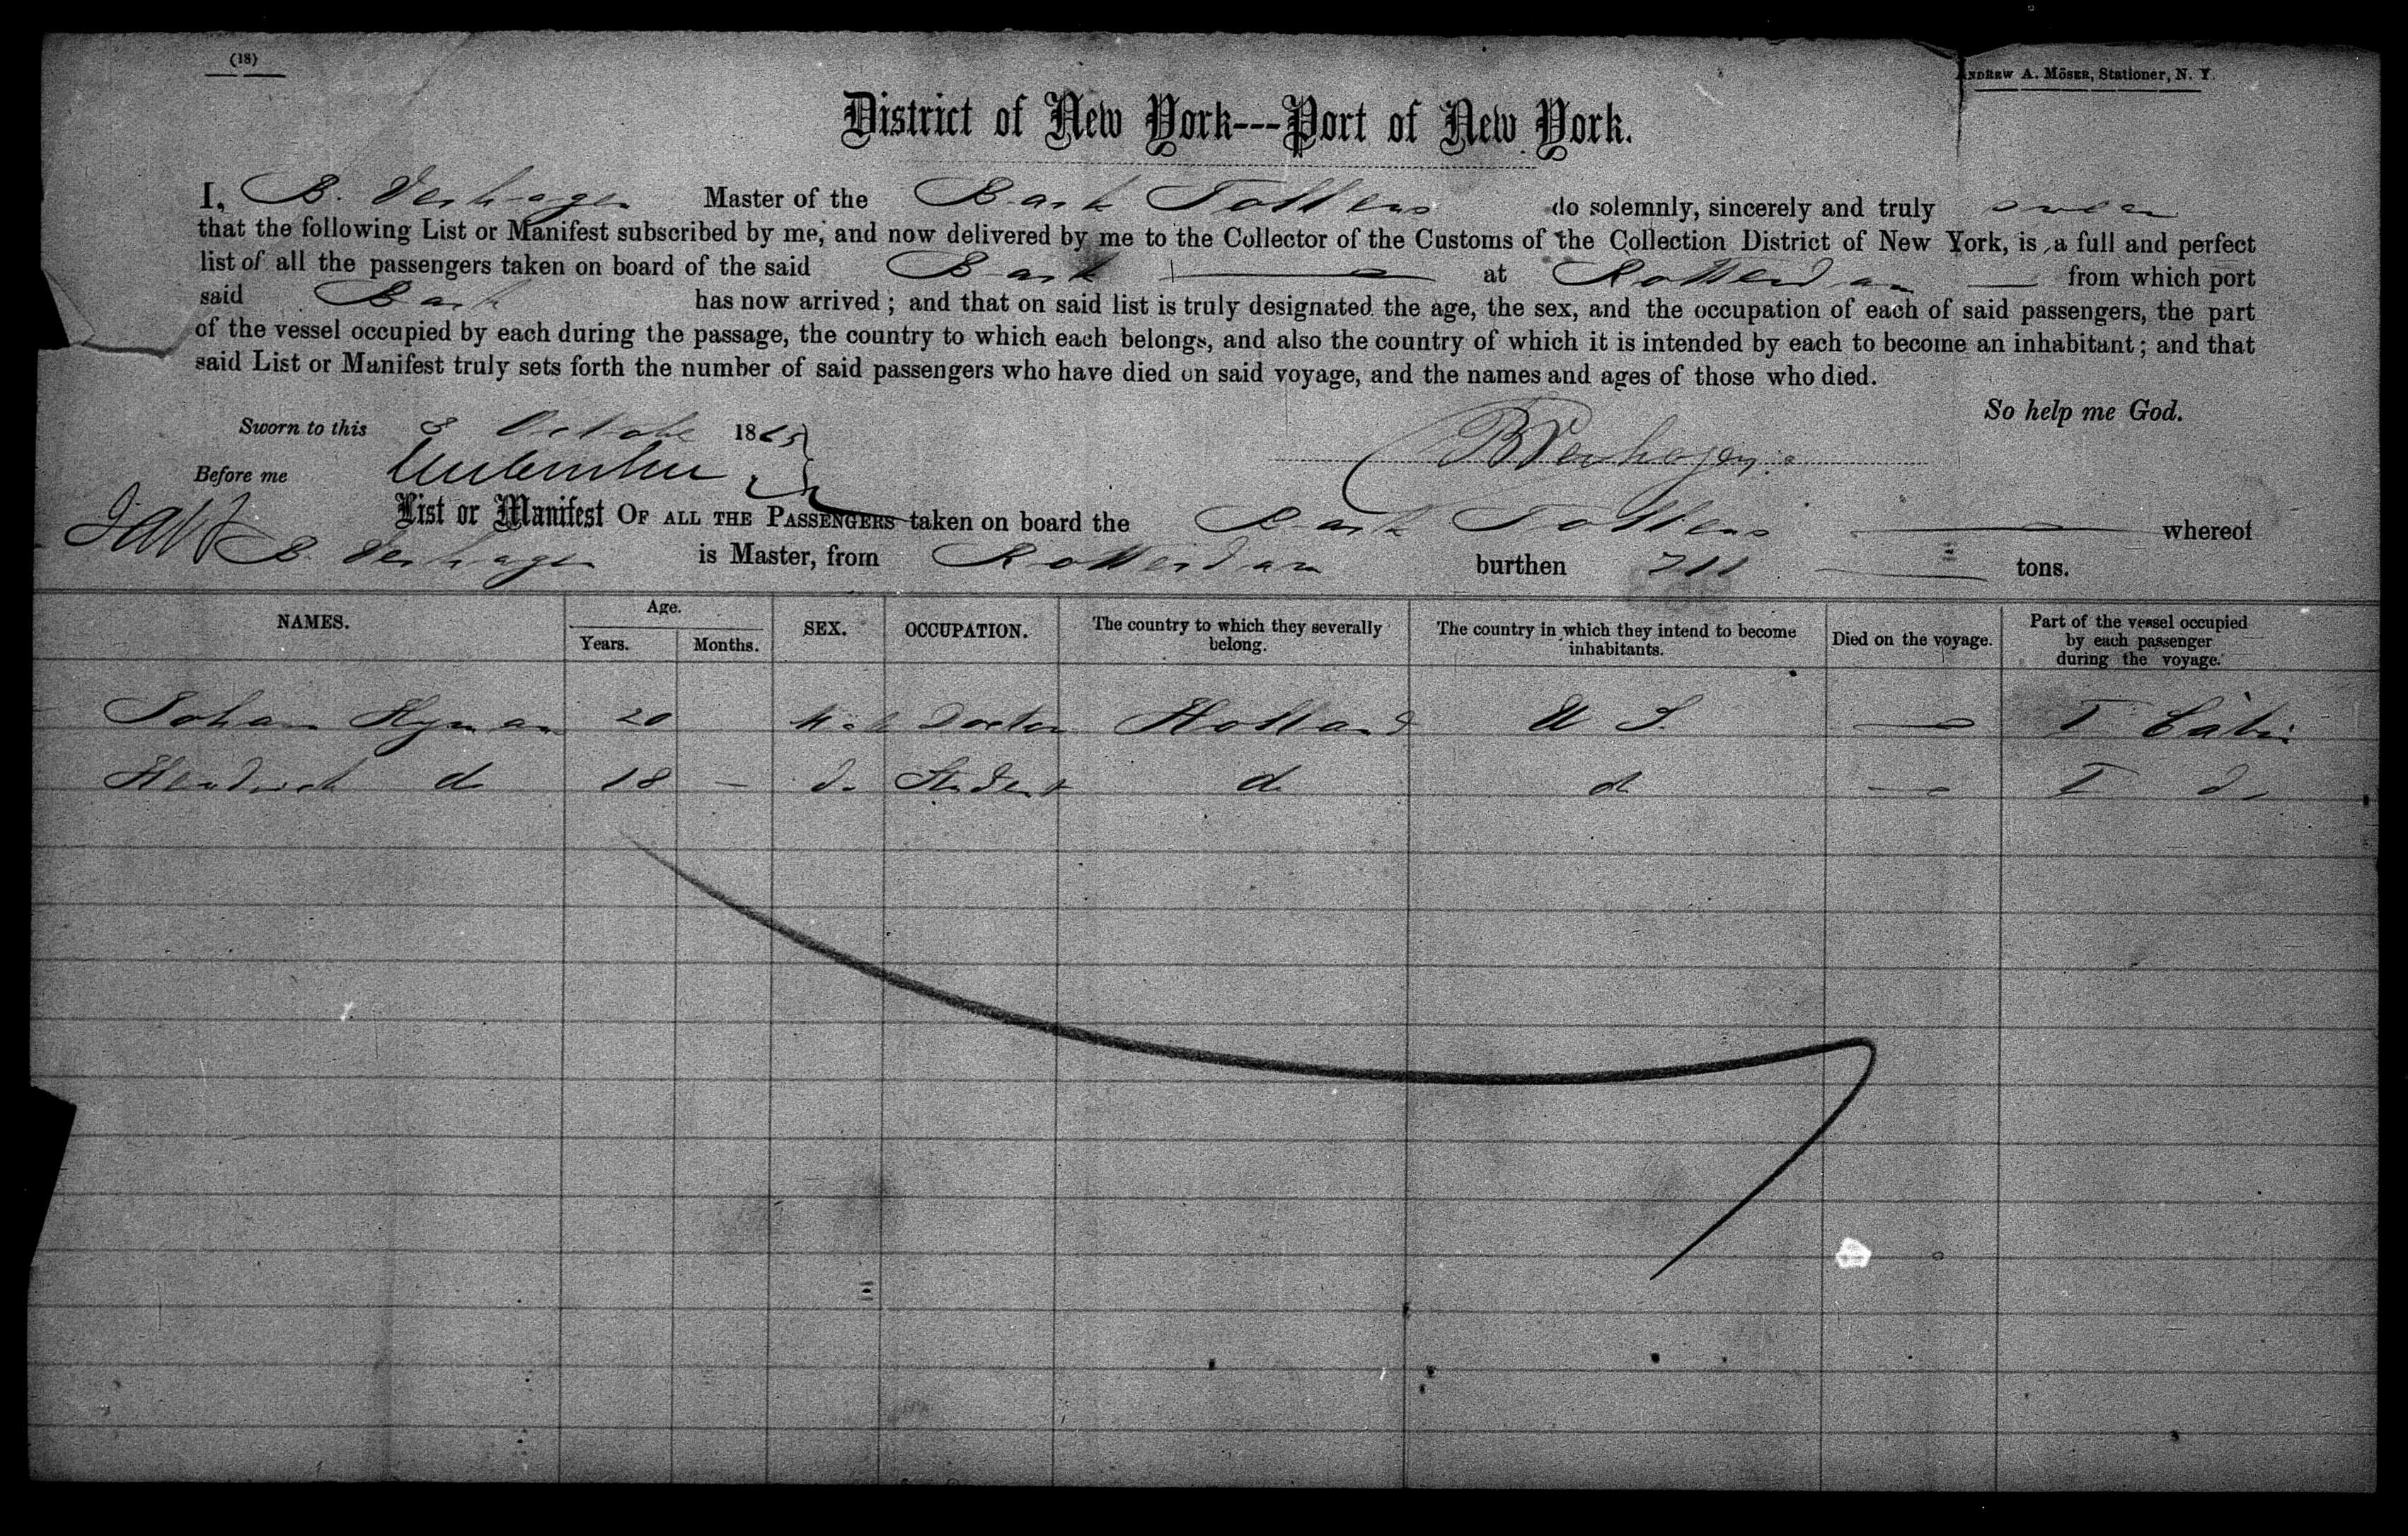 (18)
ANDREW A. MÖSER, Stationer, N. Y.
District of New York---Port of New York.
I, B. Verhagen Master of the Bark Tollens do solemnly, sincerely and truly swear
that the following List or Manifest subscribed by me, and now delivered by me to the Collector of the Customs of the Collection District of New York, is a full and perfect
list of all the passengers taken on board of the said Bark at Rotterdam from which port
said Bark has now arrived; and that on said list is truly designated the age, the sex, and the occupation of each of said passengers, the part
of the vessel occupied by each during the passage, the country to which each belongs, and also the country of which it is intended by each to become an inhabitant; and that
said List or Manifest truly sets forth the number of said passengers who have died on said voyage, and the names and ages of those who died.
So help me God.
Sworn to this 8 October 1865
BVerhagen
Before me
List or Manifest OF ALL THE PASSENGERS taken on board the Bark Tollens whereof
B. Verhagen is Master, from Rotterdam burthen 711 tons.
NAMES. Age. Years. Months. SEX. OCCUPATION. The country to which they severally belong. The country in which they intend to become inhabitants. Died on the voyage. Part of the vessel occupied by each passenger during the voyage.
Johan Hyman 20 Male Doctor Holland U S. — I Cabin
Hendrick do 18 — do Student do do — I do